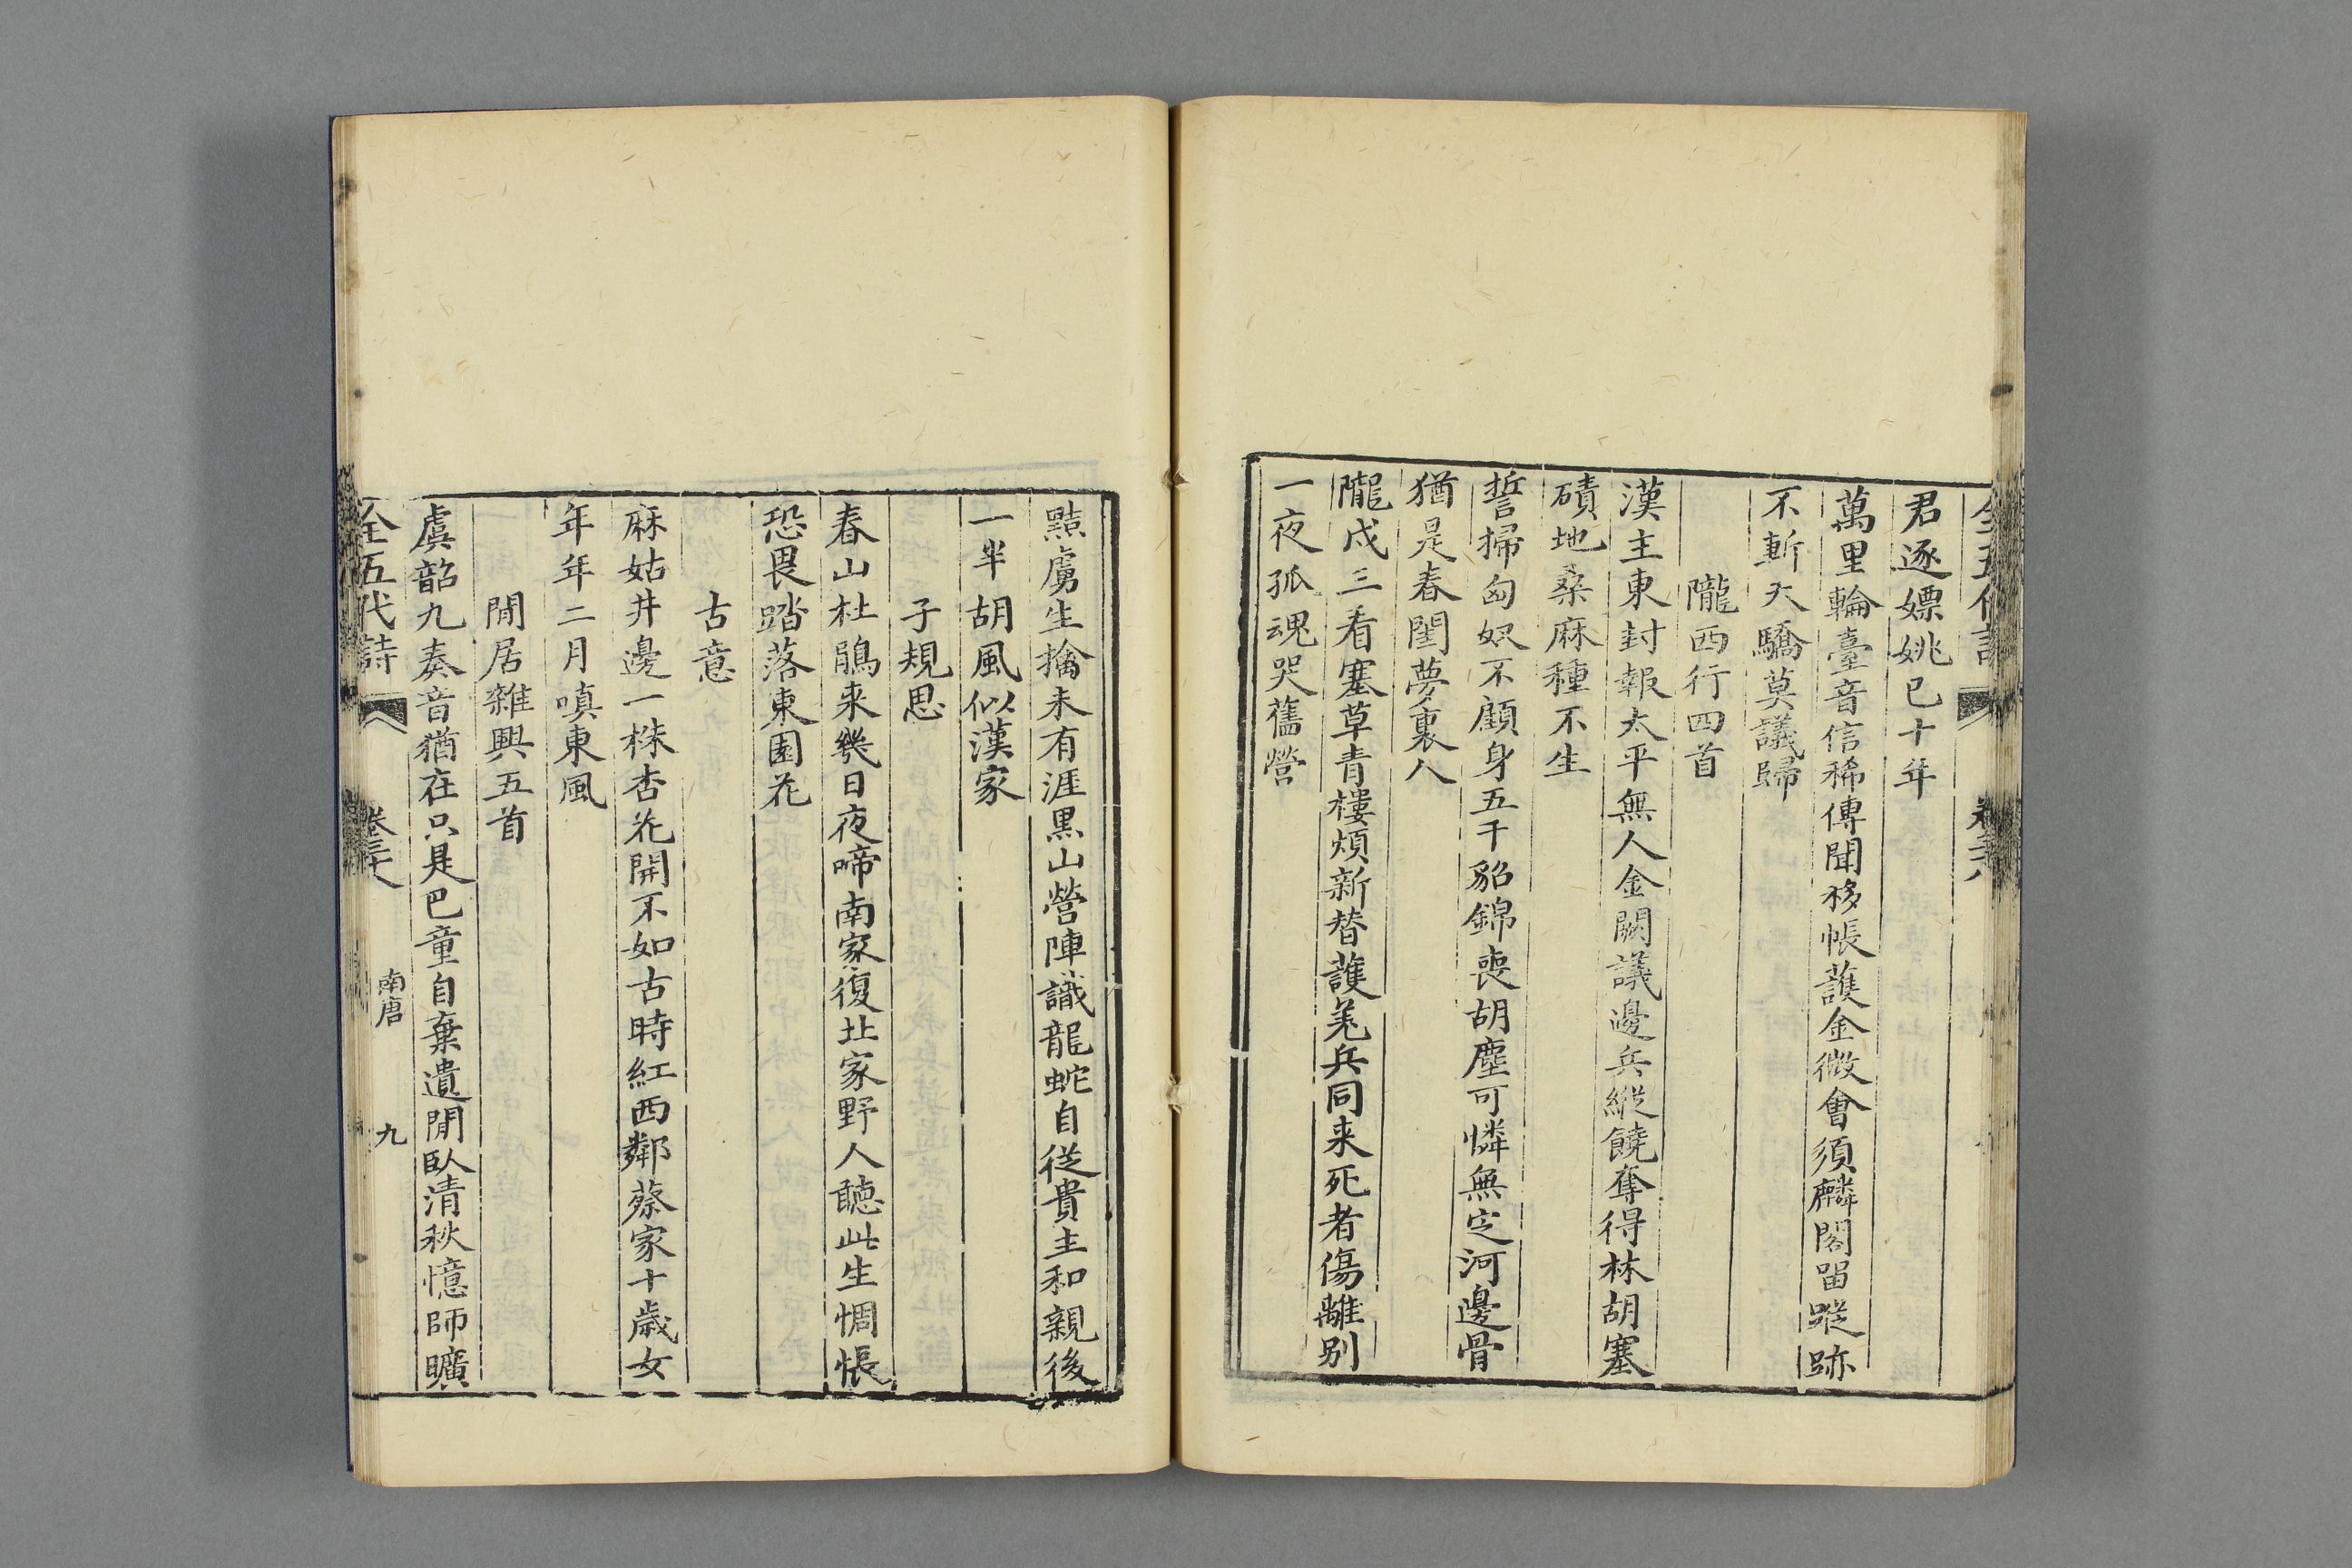 君逐嫖姚已十年
萬里輪臺音信稀傳聞移帳護金微會須麟閣留蹤跡
不斬天驕莫議歸
隴西行四首
漢主東封報太平無人金闕議邊兵縱饒奪得林胡塞
磧地桑麻種不生
誓掃匈奴不顧身五千貂錦喪胡塵可憐無定河邊骨
猶是春閨夢裏人
隴戍三看塞草青樓煩新替護羌兵同来死者傷離別
一夜孤魂哭舊營
黠虜生擒未有涯黑山營陣識龍蛇自從貴主和親後
一半胡風似漢家
子規思
春山杜鵑来幾日夜啼南家復北家野人聽此生惆悵
恐畏踏落東園花
古意
麻姑井邊一株杏花開不如古時紅西鄰蔡家十歲女
年年二月嗔東風
閒居雜興五首
虞韶九奏音猶在只是巴童自棄遺閒臥清秋憶師曠
全五代詩
南唐
九